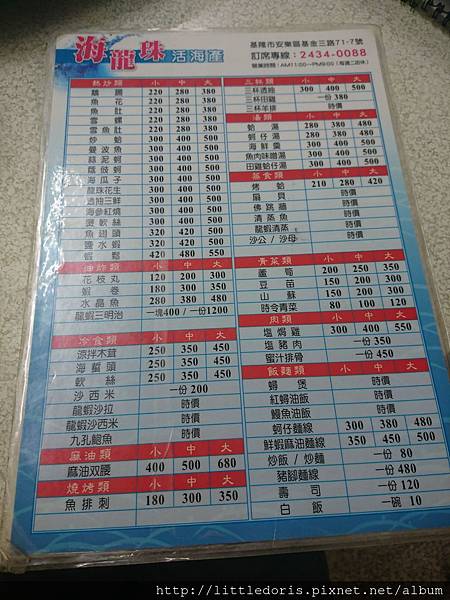 海龍珠 活海產
基隆市安樂區基金三路71-7號
訂席專線：2434-0088
營業時間：AM11:00～PM9:00（每週二店休）
熱炒類 小 中 大
魚花 220 280 380
魚肚 220 280 380
雪螺 220 280 380
雪魚肚 220 280 380
炒蛤 300 400 500
曼波魚 300 400 500
蒜泥蚵 300 400 500
蔭豉蚵 300 400 500
海瓜子 300 400 500
龍珠花生 300 400 500
透抽三鮮 300 400 500
海參紅燒 300 400 500
燙軟絲 300 400 500
魚翅頭 320 420 500
鹽水蝦 320 420 500
蝦鬆 420 480 550
油炸類 小 中 大
花枝丸 120 200 300
蝦卷 180 300 350
水晶魚 280 380 480
龍蝦三明治 一塊400 / 一份1200
冷食類 小 中 大
涼拌木茸 250 350 450
海蜇頭 250 350 450
軟絲 250 350 450
沙西米 一份 200
龍蝦沙拉 時價
龍蝦沙西米 時價
九孔鮑魚 時價
麻油類 小 中 大
麻油双腰 400 500 680
燒烤類 小 中 大
魚排刺 180 300 350
三杯類 小 中 大
三杯透抽 300 400 500
三杯田雞 一份 380
三杯羊排 時價
湯類 小 中 大
蛤湯 280 380 480
蚵仔湯 280 380 480
海鮮羹 300 400 500
魚肉味噌湯 300 400 500
田雞蛤仔湯 300 400 500
蒸食類 小 中 大
烤蛤 210 280 420
扇貝 時價
佛跳牆 時價
清蒸魚 時價
龍蝦清蒸 時價
沙公 / 沙母 時價
青菜類 小 中 大
蘆筍 200 250 350
豆苗 150 200 300
山蘇 150 200 300
時令青菜 80 100 120
肉類 小 中 大
塩焗雞 300 400 550
塩豬肉 一份 350
蜜汁排骨 一份 450
飯麵類 小 中 大
蟳煲 時價
紅蟳油飯 時價
鰻魚油飯 時價
蚵仔麵線 300 380 480
鮮蝦麻油麵線 350 450 500
炒飯 / 炒麵 一份 80
豬腳麵線 一份 480
壽司 一份 120
白飯 一碗 10
http://littledoris.pixnet.net/album